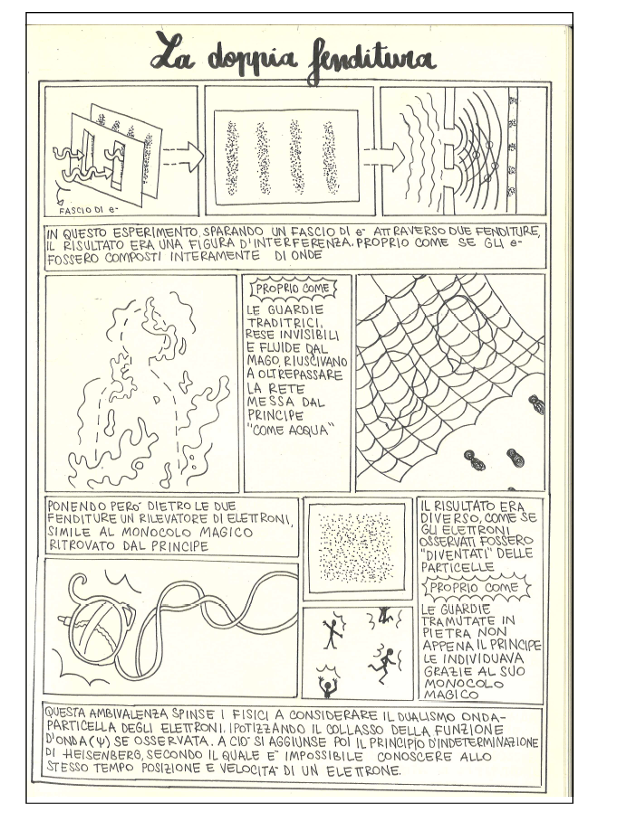 La doppia fenditura
FASCIO DI e-
IN QUESTO ESPERIMENTO, SPARANDO UN FASCIO DI e- ATTRAVERSO DUE FENDITURE,
IL RISULTATO ERA UNA FIGURA D'INTERFERENZA. PROPRIO COME SE GLI e-
FOSSERO COMPOSTI INTERAMENTE DI ONDE
PROPRIO COME
LE GUARDIE
TRADITRICI,
RESE INVISIBILI
E FLUIDE DAL
MAGO, RIUSCIVANO
A OLTREPASSARE
LA RETE
MESSA DAL
PRINCIPE
"COME ACQUA"
PONENDO PERO' DIETRO LE DUE
FENDITURE UN RILEVATORE DI ELETTRONI,
SIMILE AL MONOCOLO MAGICO
RITROVATO DAL PRINCIPE
IL RISULTATO ERA
DIVERSO, COME SE
GLI ELETTRONI
OSSERVATI FOSSERO
"DIVENTATI" DELLE
PARTICELLE
PROPRIO COME
LE GUARDIE
TRAMUTATE IN
PIETRA NON
APPENA IL PRINCIPE
LE INDIVIDUAVA
GRAZIE AL SUO
MONOCOLO
MAGICO
QUESTA AMBIVALENZA SPINSE I FISICI A CONSIDERARE IL DUALISMO ONDA-
PARTICELLA DEGLI ELETTRONI. IPOTIZZANDO IL COLLASSO DELLA FUNZIONE
D'ONDA (Ψ) SE OSSERVATA. A CIO' SI AGGIUNSE POI IL PRINCIPIO D'INDETERMINAZIONE
DI HEISENBERG, SECONDO IL QUALE E' IMPOSSIBILE CONOSCERE ALLO
STESSO TEMPO POSIZIONE E VELOCITA' DI UN ELETTRONE.